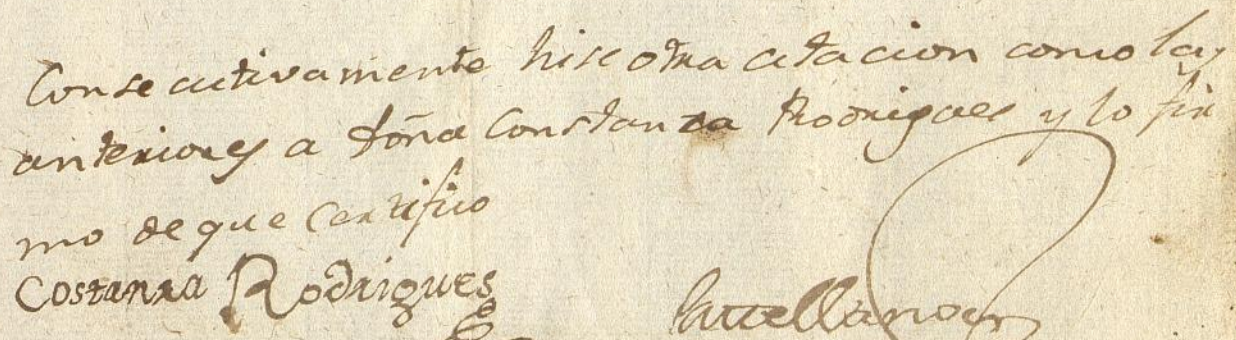 Consecutivamente hise otra citacion como las
anteriores a doña Constanza Rodrigues y lo fir
mo de que certifico
Costanza Rodrigues